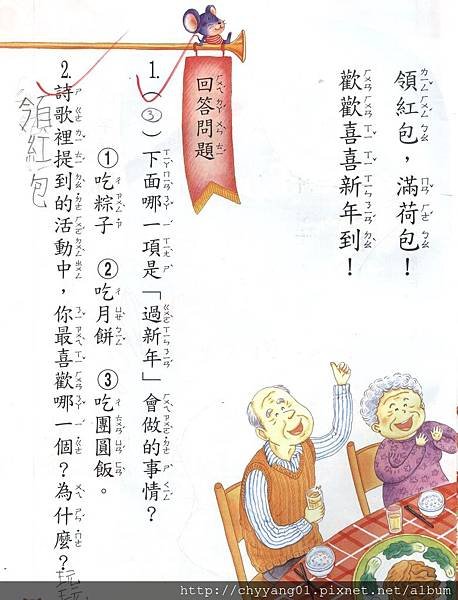 領紅包，滿荷包！
歡歡喜喜新年到！
回答問題
1.（③）下面哪一項是「過新年」會做的事情？
①吃粽子 ②吃月餅 ③吃團圓飯。
2.詩歌裡提到的活動中，你最喜歡哪一個？為什麼？
領紅包
http://chyyang01.pixnet.net/album